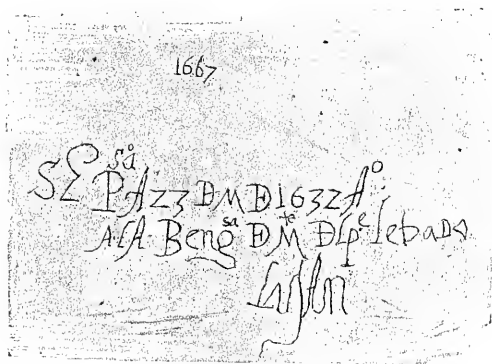 1667
SE Pˢᵃ A 23 ĐM Đ1632 Aº
A LA Bengˢᵃ ĐMᵗᵉ ĐLpᵉ Lebado
Lujan